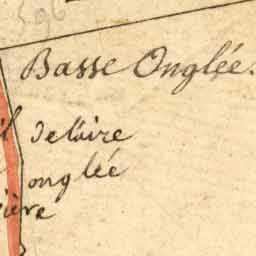 396
Basse Onglée.
il Delaire
onglée
ière